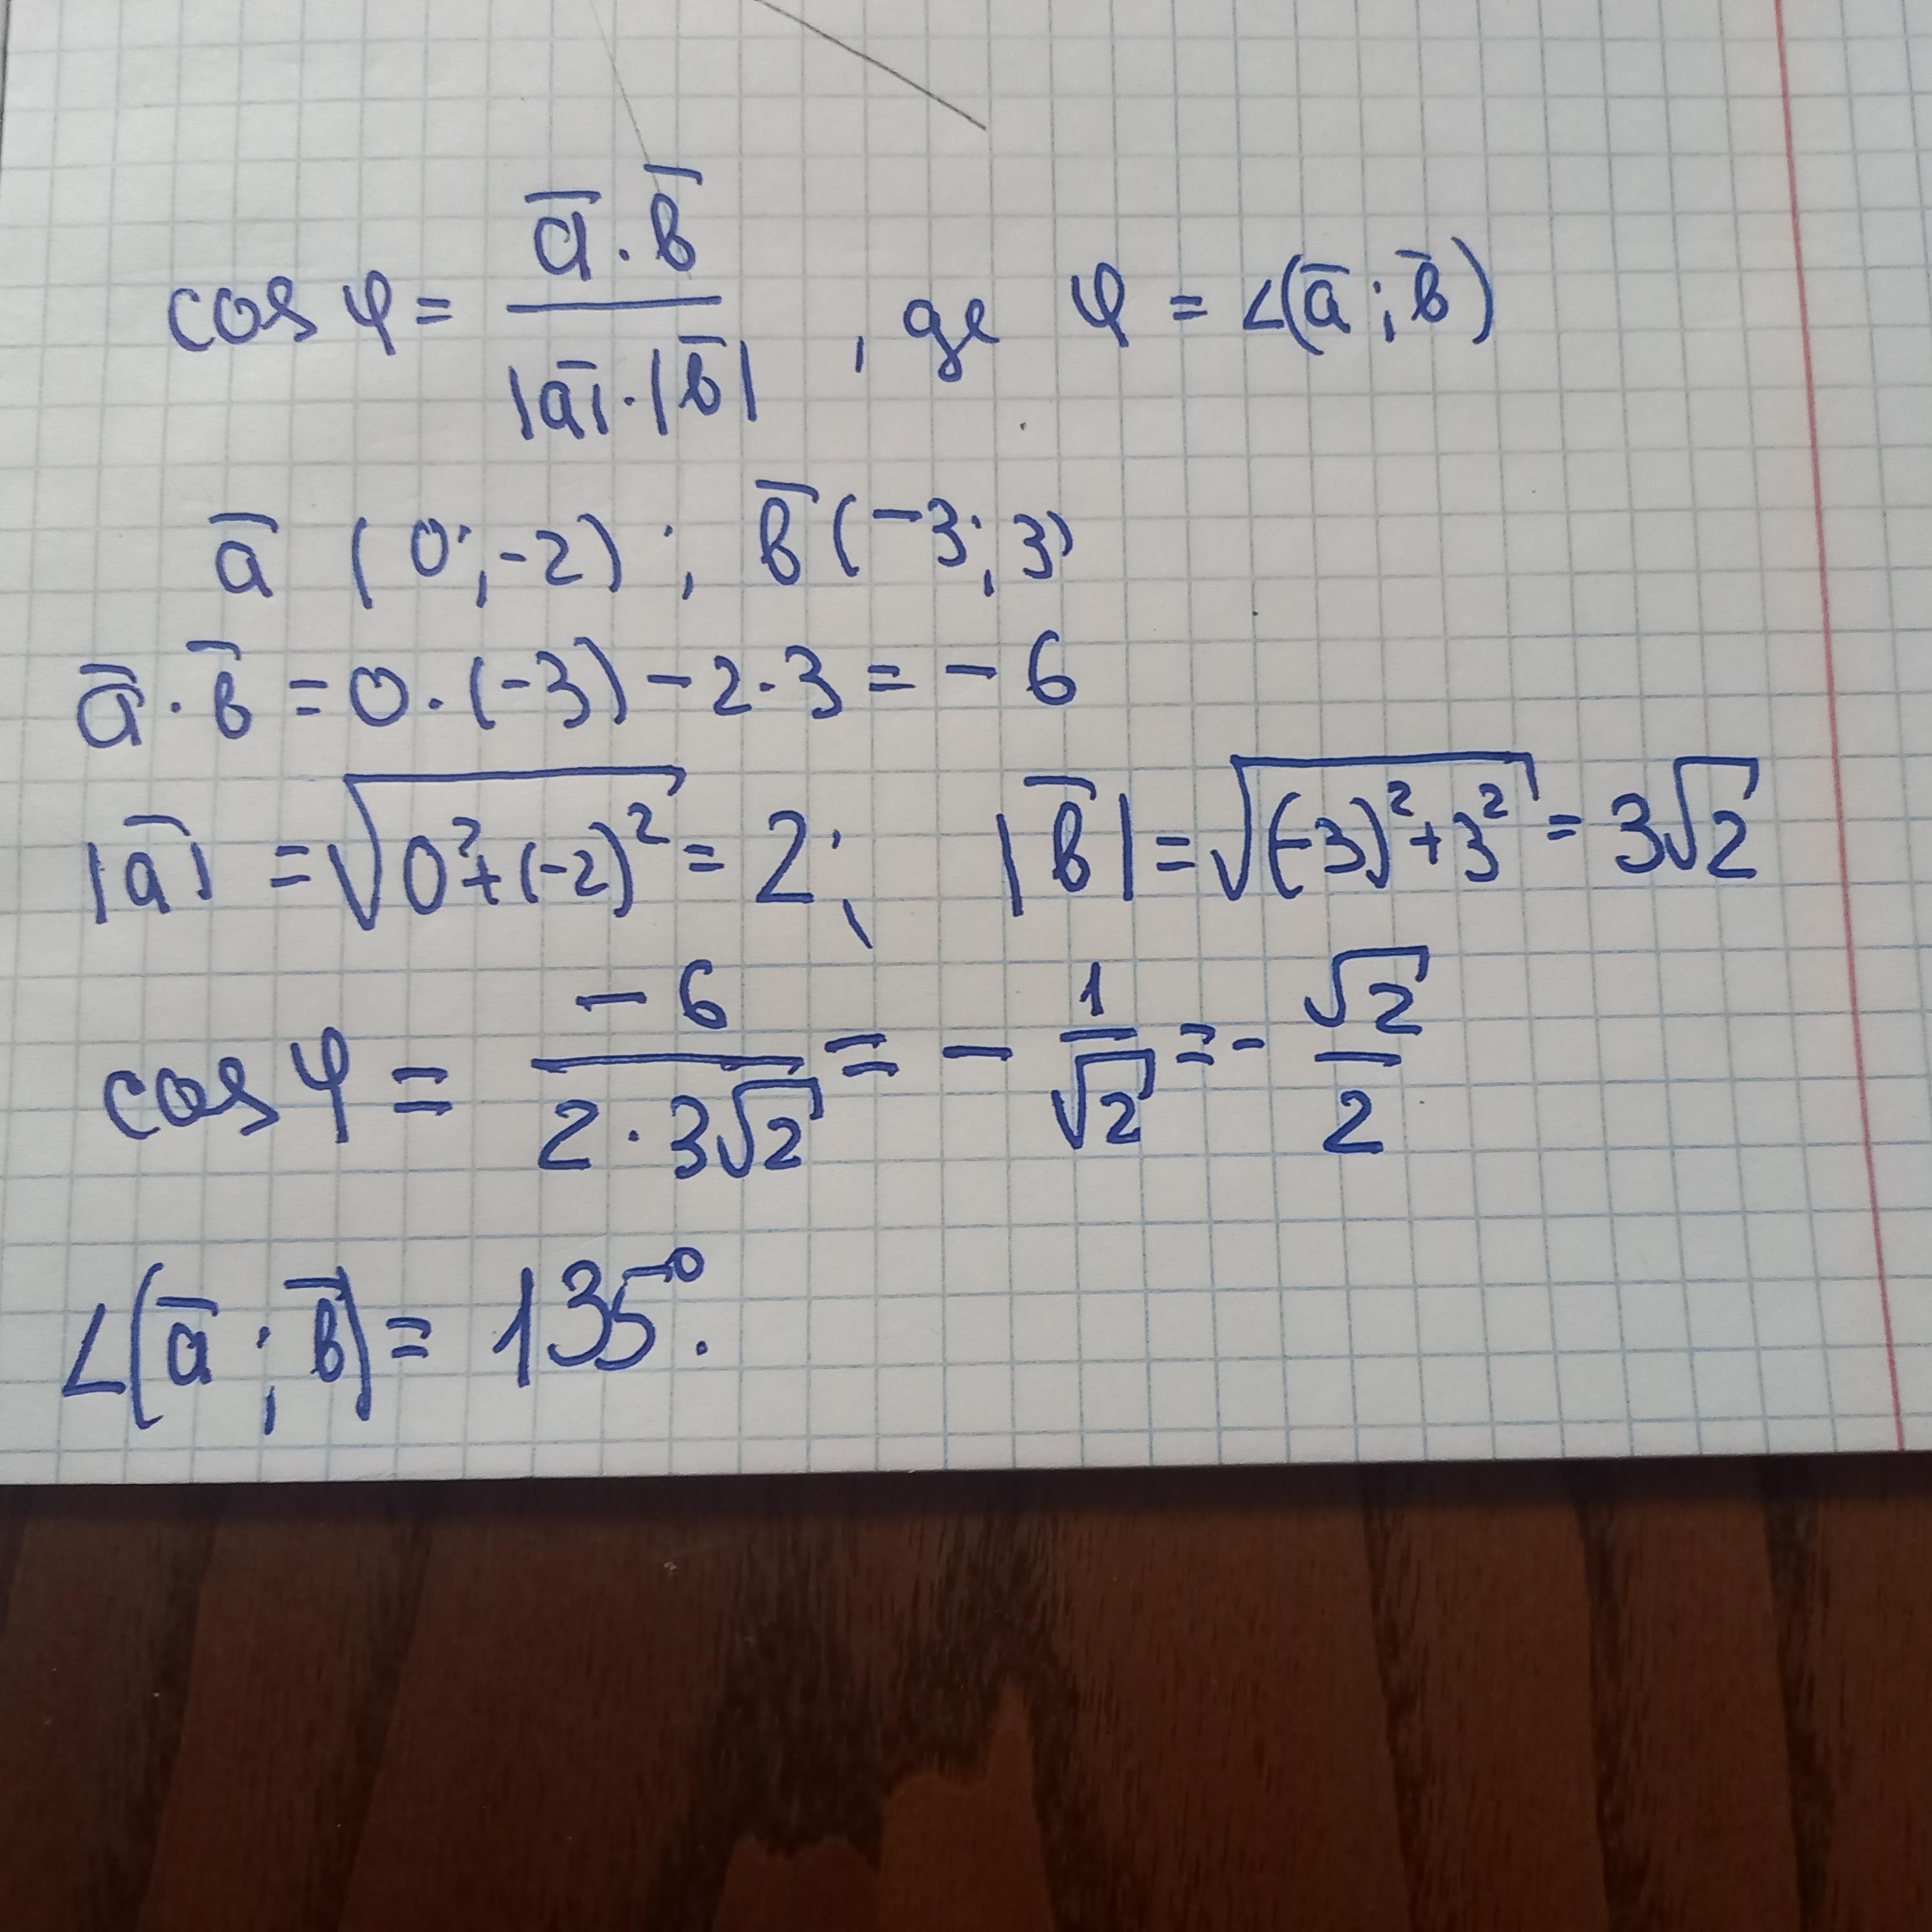 cos φ = (a̅ · b̅) / (|a̅| · |b̅|) , де φ = ∠(a̅ ; b̅)
a̅ (0; -2) ; b̅ (-3; 3)
a̅ · b̅ = 0 · (-3) - 2 · 3 = - 6
|a̅| = √(0² + (-2)²) = 2; |b̅| = √((-3)² + 3²) = 3√2
cos φ = -6 / (2 · 3√2) = - 1/√2 = - √2/2
∠(a̅ ; b̅) = 135°.